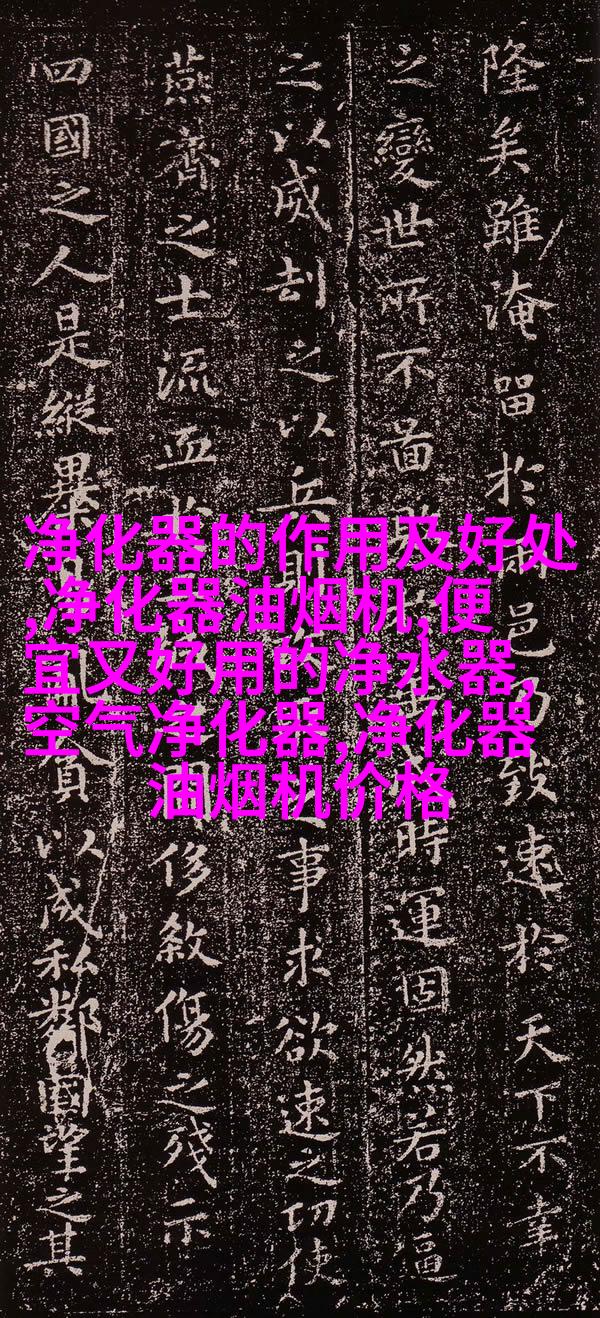 隆矣雖淹留於兩邑乃致速於天下不幸
之變世所不啚敢時運固然若乃逼
之以威刦之以兵則事求欲速之功使
燕齊之士流血於侈煞傷之殘示
四國之人是縱暴貪以成私鄰國望之其
净化器的作用及好处
,净化器油烟机,便
宜又好用的净水器,
空气净化器,净化器
油烟机价格